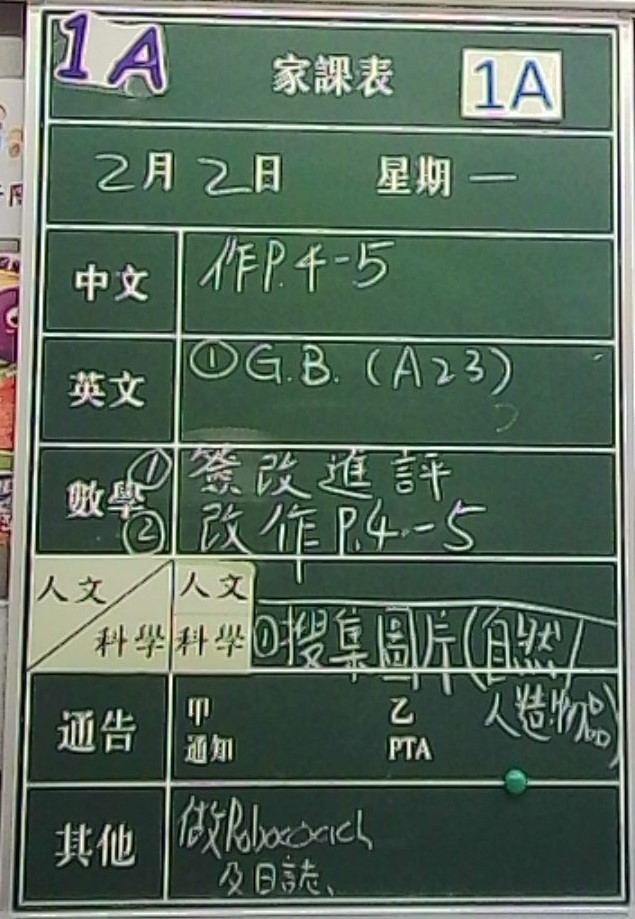 1A
家課表 1A
2月2日 星期一
中文 作P.4-5
英文 ①G.B.(A23)
數學 ①簽改進評
②改作P.4-5
人文 人文
科學 科學 ①搜集圖片(自然/
人造物品)
通告 甲 乙
通知 PTA
其他 做Robocoach
及日誌、